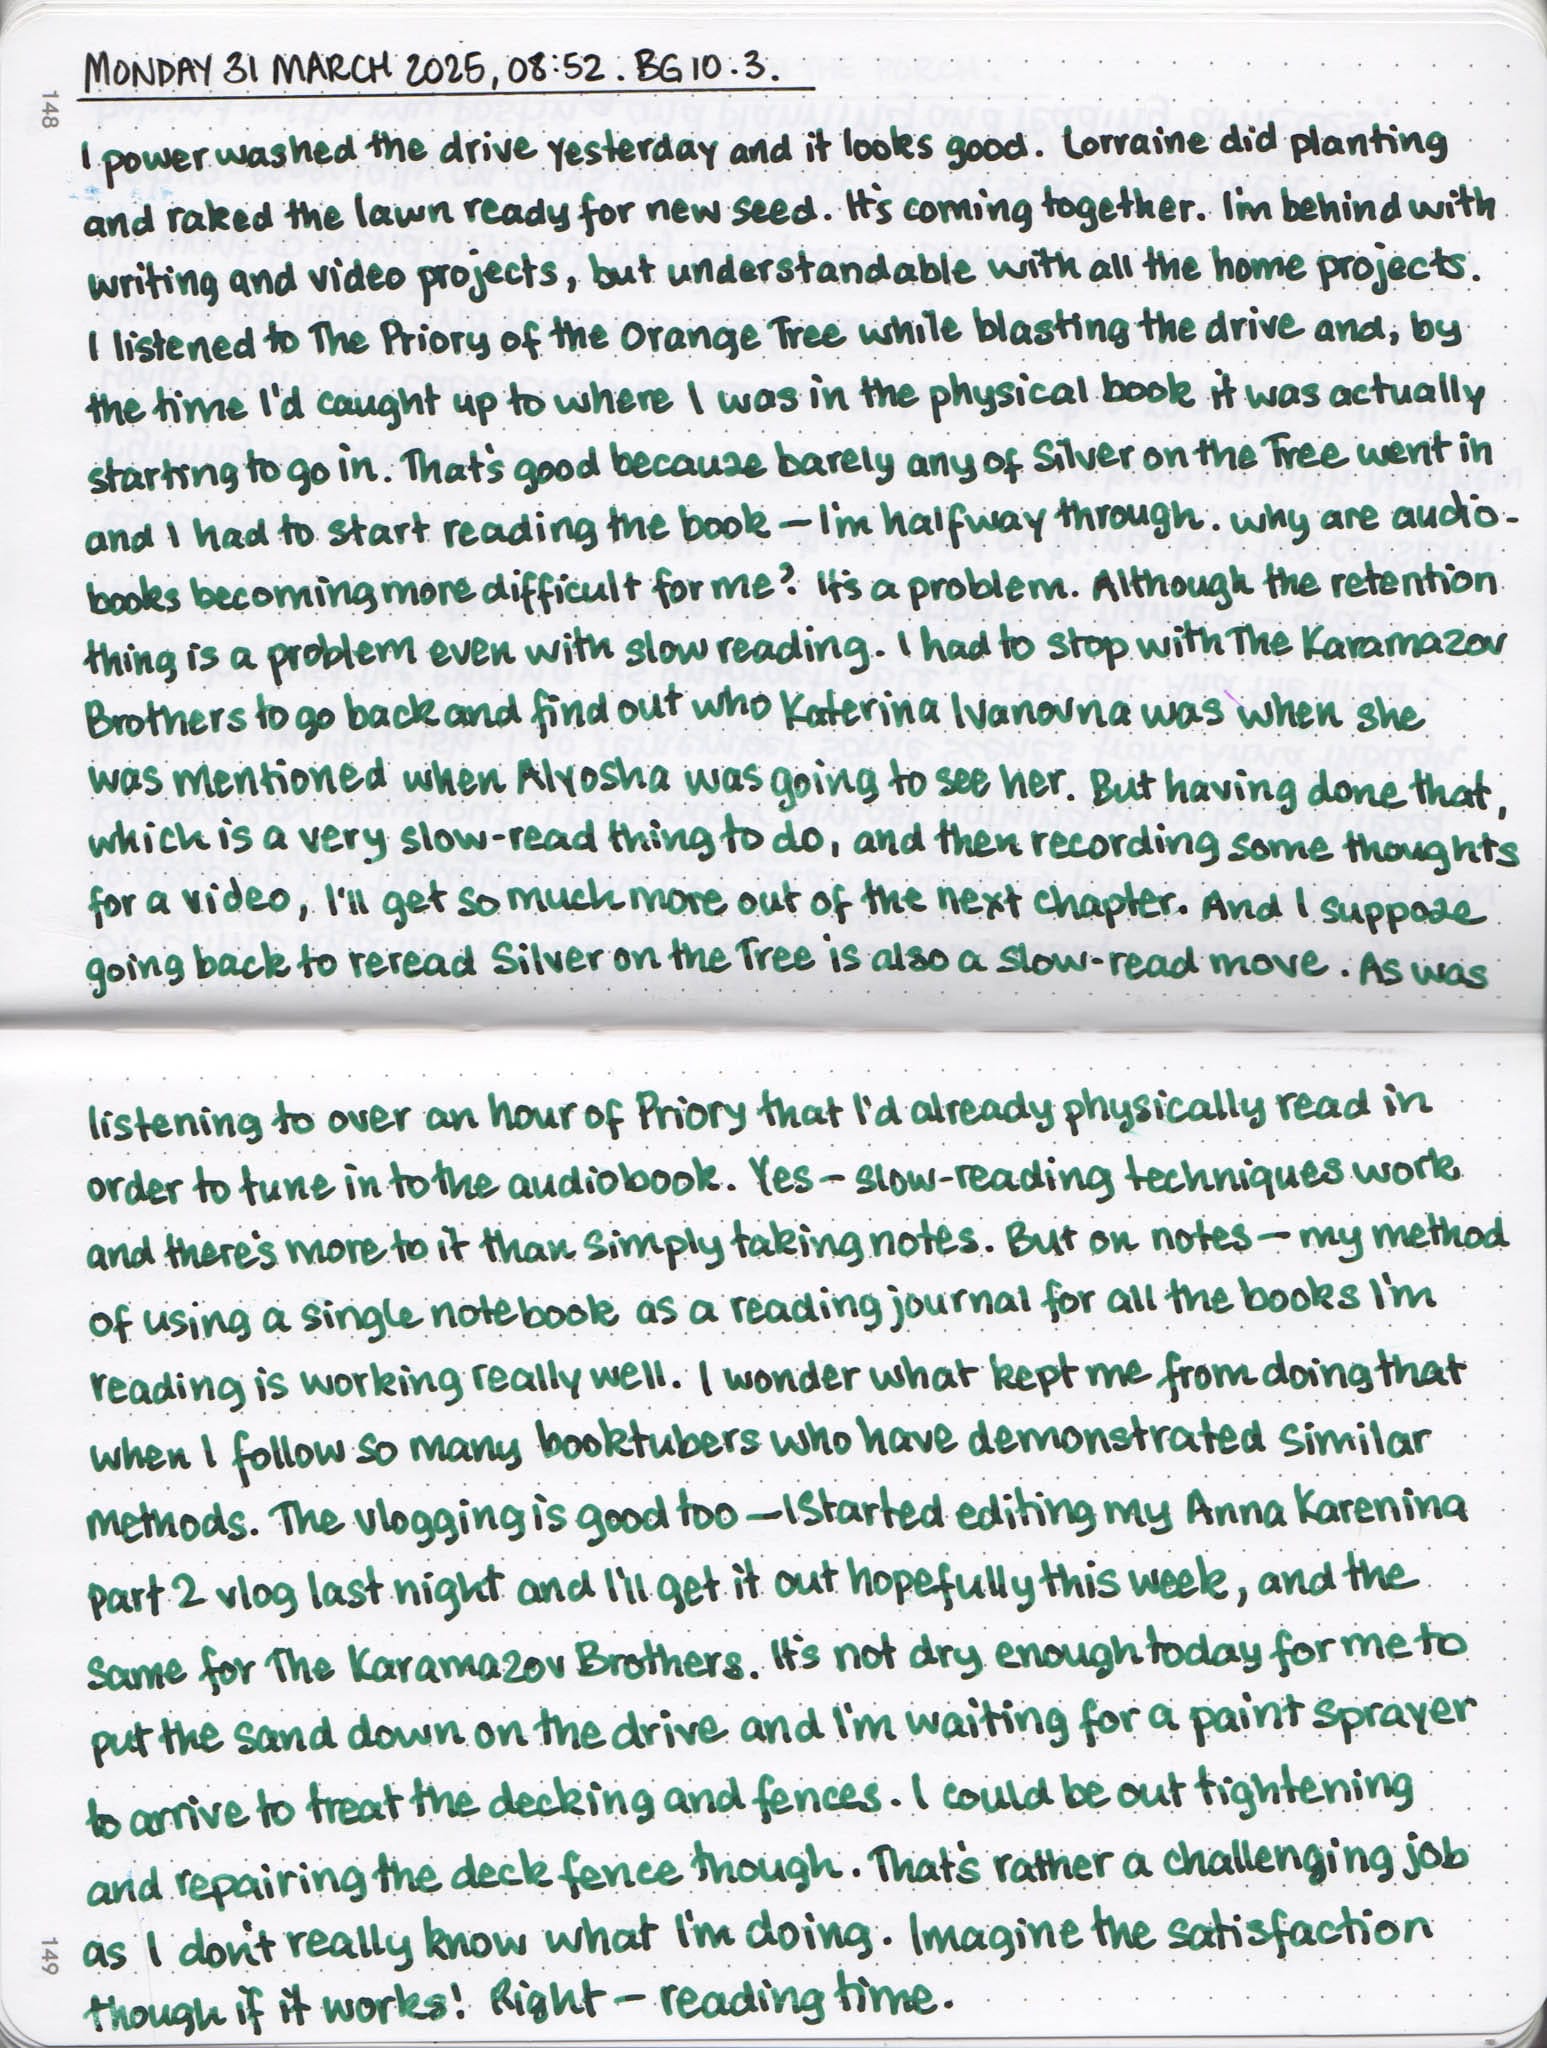 MONDAY 31 MARCH 2025, 08:52. BG 10.3.
148
I power washed the drive yesterday and it looks good. Lorraine did planting
and raked the lawn ready for new seed. It's coming together. I'm behind with
writing and video projects, but understandable with all the home projects.
I listened to The Priory of the Orange Tree while blasting the drive and, by
the time I'd caught up to where I was in the physical book it was actually
starting to go in. That's good because barely any of Silver on the Tree went in
and I had to start reading the book – I'm halfway through. Why are audio-
books becoming more difficult for me? It's a problem. Although the retention
thing is a problem even with slow reading. I had to stop with The Karamazov
Brothers to go back and find out who Katerina Ivanovna was when she
was mentioned when Alyosha was going to see her. But having done that,
which is a very slow-read thing to do, and then recording some thoughts
for a video, I'll get so much more out of the next chapter. And I suppose
going back to reread Silver on the Tree is also a slow-read move. As was
listening to over an hour of Priory that I'd already physically read in
order to tune in to the audiobook. Yes – slow-reading techniques work
and there's more to it than simply taking notes. But on notes – my method
of using a single notebook as a reading journal for all the books I'm
reading is working really well. I wonder what kept me from doing that
when I follow so many booktubers who have demonstrated similar
methods. The vlogging is good too – I started editing my Anna Karenina
part 2 vlog last night and I'll get it out hopefully this week, and the
same for The Karamazov Brothers. It's not dry enough today for me to
put the sand down on the drive and I'm waiting for a paint sprayer
to arrive to treat the decking and fences. I could be out tightening
and repairing the deck fence though. That's rather a challenging job
as I don't really know what I'm doing. Imagine the satisfaction
though if it works! Right – reading time.
149